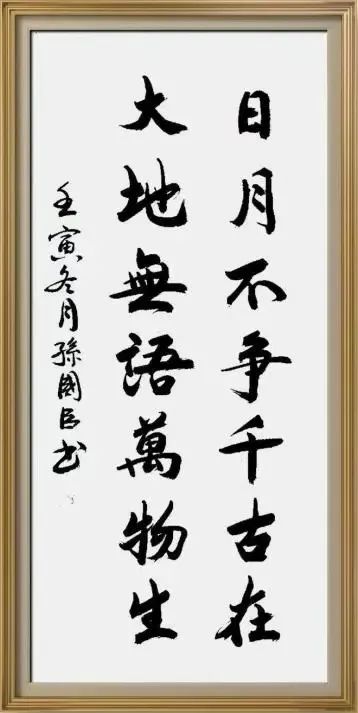 日月不争千古在
大地無語萬物生
壬寅冬月孫國臣书